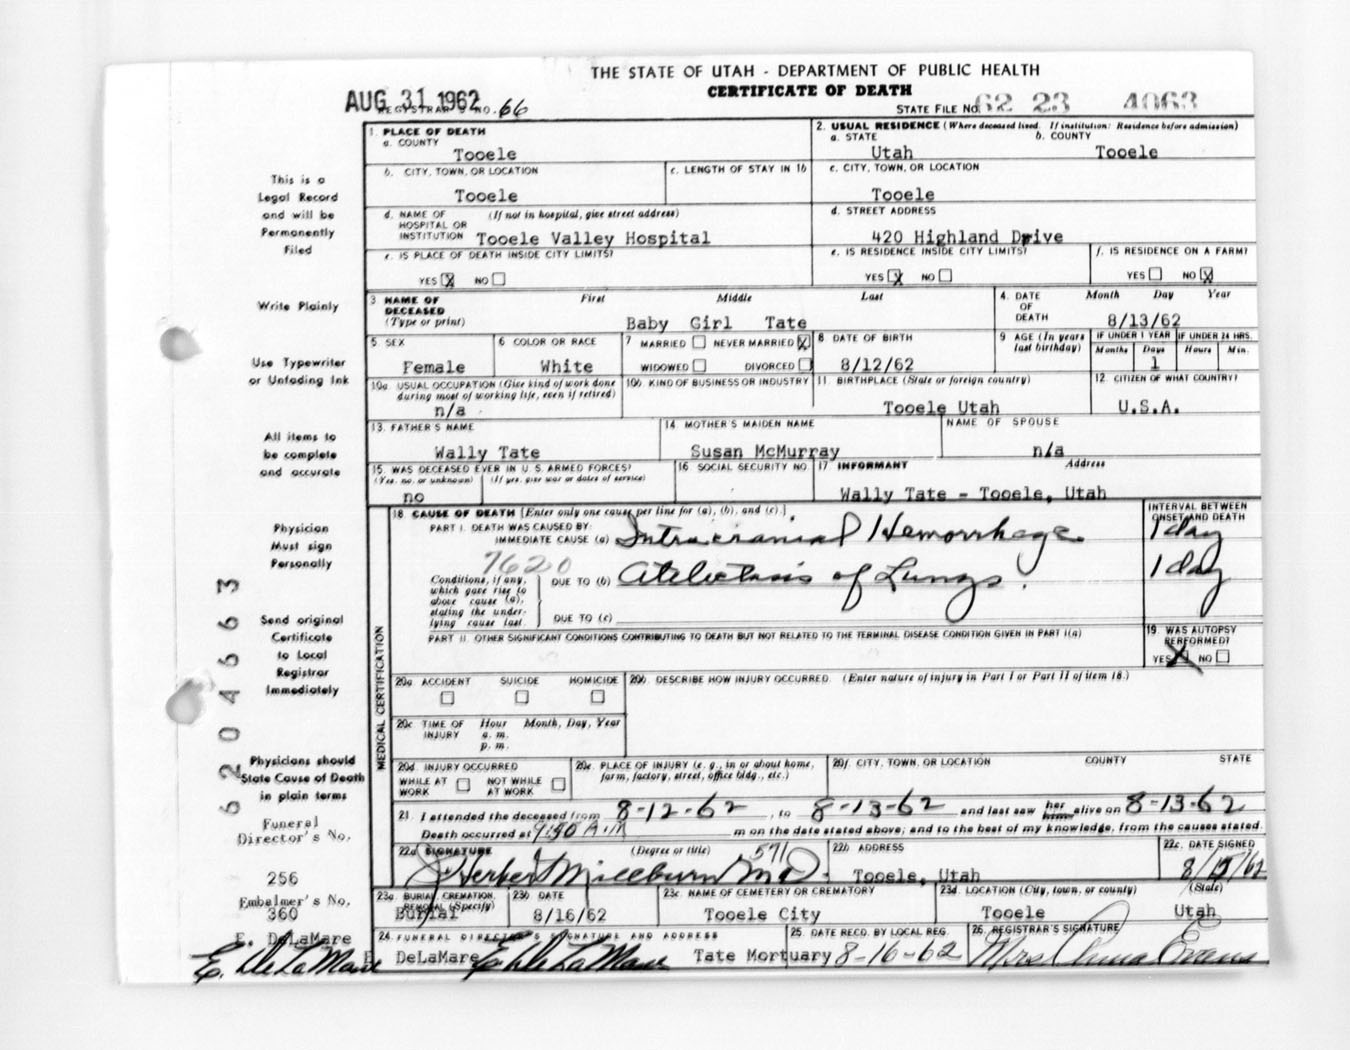 THE STATE OF UTAH - DEPARTMENT OF PUBLIC HEALTH
CERTIFICATE OF DEATH
AUG 31 1962 REGISTRAR'S NO. 66
STATE FILE NO. 62 23 4063
1. PLACE OF DEATH
a. COUNTY
Tooele
2. USUAL RESIDENCE (Where deceased lived. If institution: Residence before admission)
a. STATE b. COUNTY
Utah Tooele
b. CITY, TOWN, OR LOCATION
Tooele
c. LENGTH OF STAY IN 1b
c. CITY, TOWN, OR LOCATION
Tooele
d. NAME OF HOSPITAL OR INSTITUTION (If not in hospital, give street address)
Tooele Valley Hospital
d. STREET ADDRESS
420 Highland Drive
e. IS PLACE OF DEATH INSIDE CITY LIMITS?
YES X NO
e. IS RESIDENCE INSIDE CITY LIMITS?
YES X NO
f. IS RESIDENCE ON A FARM?
YES NO X
3 NAME OF DECEASED (Type or print)
First Middle Last
Baby Girl Tate
4. DATE OF DEATH Month Day Year
8/13/62
5. SEX
Female
6 COLOR OR RACE
White
7 MARRIED NEVER MARRIED X
WIDOWED DIVORCED
8 DATE OF BIRTH
8/12/62
9 AGE (In years last birthday)
IF UNDER 1 YEAR IF UNDER 24 HRS.
Months Days Hours Min.
1
10a. USUAL OCCUPATION (Give kind of work done during most of working life, even if retired)
n/a
10b. KIND OF BUSINESS OR INDUSTRY
11. BIRTHPLACE (State or foreign country)
Tooele Utah
12. CITIZEN OF WHAT COUNTRY?
U.S.A.
13. FATHER'S NAME
Wally Tate
14 MOTHER'S MAIDEN NAME
Susan McMurray
NAME OF SPOUSE
n/a
15. WAS DECEASED EVER IN U. S. ARMED FORCES?
(Yes, no, or unknown) (If yes, give war or dates of service)
no
16 SOCIAL SECURITY NO.
17 INFORMANT Address
Wally Tate - Tooele, Utah
MEDICAL CERTIFICATION
18 CAUSE OF DEATH [Enter only one cause per line for (a), (b), and (c).]
INTERVAL BETWEEN ONSET AND DEATH
PART I. DEATH WAS CAUSED BY:
IMMEDIATE CAUSE (a) Intracranial Hemorrhage 1 day
7620
Conditions, if any, which gave rise to above cause (a), stating the underlying cause last.
DUE TO (b) Atelectasis of Lungs. 1 day
DUE TO (c)
PART II. OTHER SIGNIFICANT CONDITIONS CONTRIBUTING TO DEATH BUT NOT RELATED TO THE TERMINAL DISEASE CONDITION GIVEN IN PART I(a)
19. WAS AUTOPSY PERFORMED?
YES X NO
20a. ACCIDENT SUICIDE HOMICIDE
20b. DESCRIBE HOW INJURY OCCURRED. (Enter nature of injury in Part I or Part II of item 18.)
20c. TIME OF INJURY Hour Month, Day, Year
a. m.
p. m.
20d. INJURY OCCURRED
WHILE AT WORK NOT WHILE AT WORK
20e. PLACE OF INJURY (e. g., in or about home, farm, factory, street, office bldg., etc.)
20f. CITY, TOWN, OR LOCATION COUNTY STATE
21. I attended the deceased from 8-12-62, to 8-13-62 and last saw her alive on 8-13-62
Death occurred at 9:50 A.M m on the date stated above; and to the best of my knowledge, from the causes stated.
22a SIGNATURE (Degree or title) 571
J Herbert Millburn MD.
22b ADDRESS
Tooele, Utah
22c. DATE SIGNED
8/15/62
23a. BURIAL, CREMATION, REMOVAL (Specify)
Burial
23b DATE
8/16/62
23c. NAME OF CEMETERY OR CREMATORY
Tooele City
23d. LOCATION (City, town, or county) (State)
Tooele Utah
24 FUNERAL DIRECTOR'S SIGNATURE AND ADDRESS
E DeLaMare E. DeLaMare Tate Mortuary
25. DATE RECD. BY LOCAL REG.
8-16-62
26. REGISTRAR'S SIGNATURE
Mrs Anna Evans
This is a
Legal Record
and will be
Permanently
Filed
Write Plainly
Use Typewriter
or Unfading Ink
All items to
be complete
and accurate
Physician
Must sign
Personally
Send original
Certificate
to Local
Registrar
Immediately
Physicians should
State Cause of Death
in plain terms
Funeral
Director's No.
256
Embalmer's No.
360
E. DeLaMare
E. DeLaMare
6204663